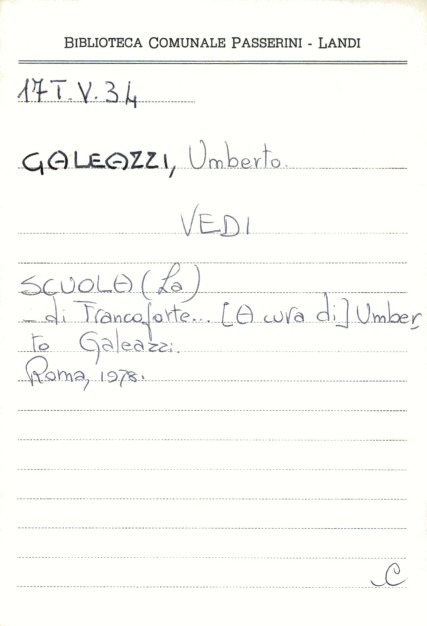 BIBLIOTECA COMUNALE PASSERINI - LANDI
17 T. V. 34
GALEAZZI, Umberto.
VEDI
SCUOLA (La)
_ di Francoforte... [A cura di] Umber_
to Galeazzi.
Roma, 1978.
C